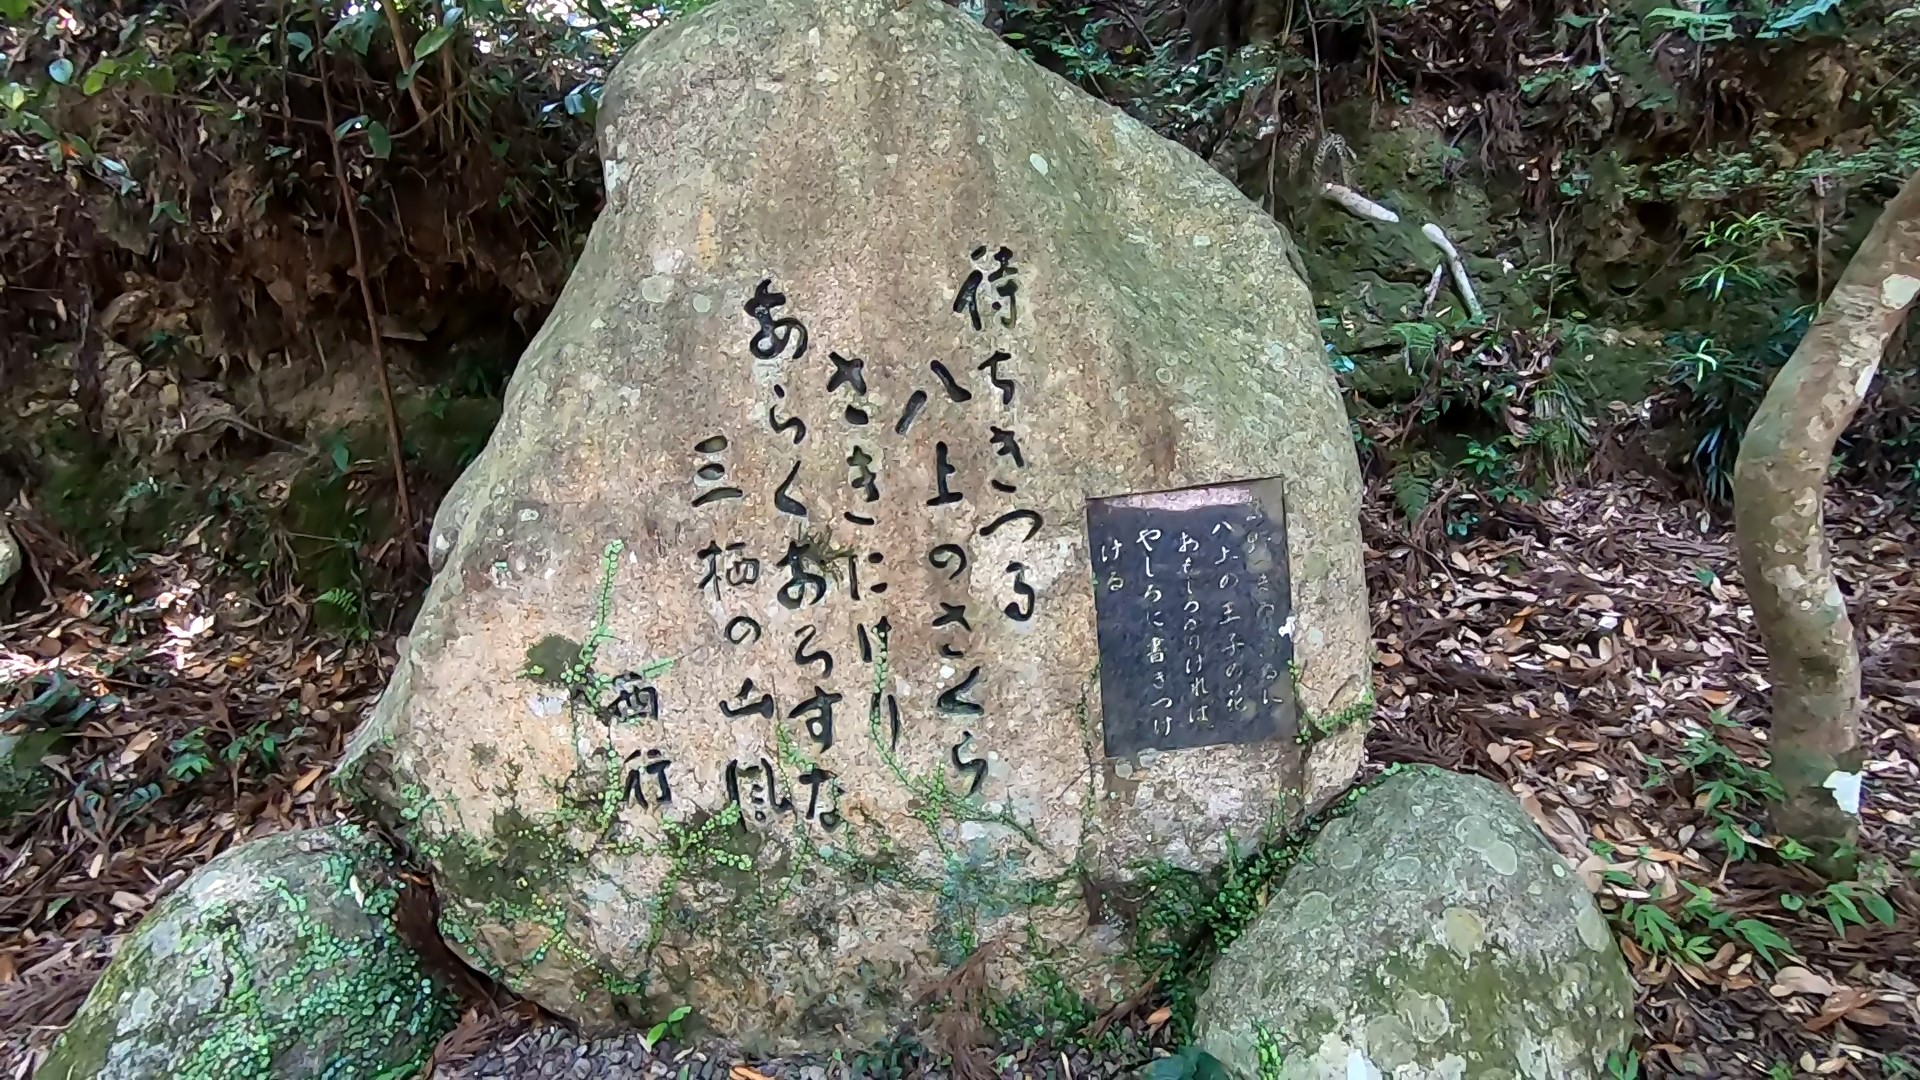 るに
八上の王子の花
おもしろかりければ
やしろに書きつけ
ける
待ちきつる
八上のさくら
さきにけり
あらくおろすな
三栖の山風
西行